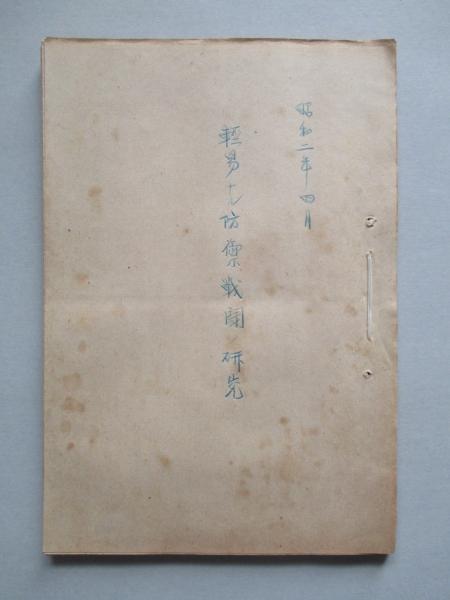 昭和二年四月
軽易ナル防禦戦闘ノ研究